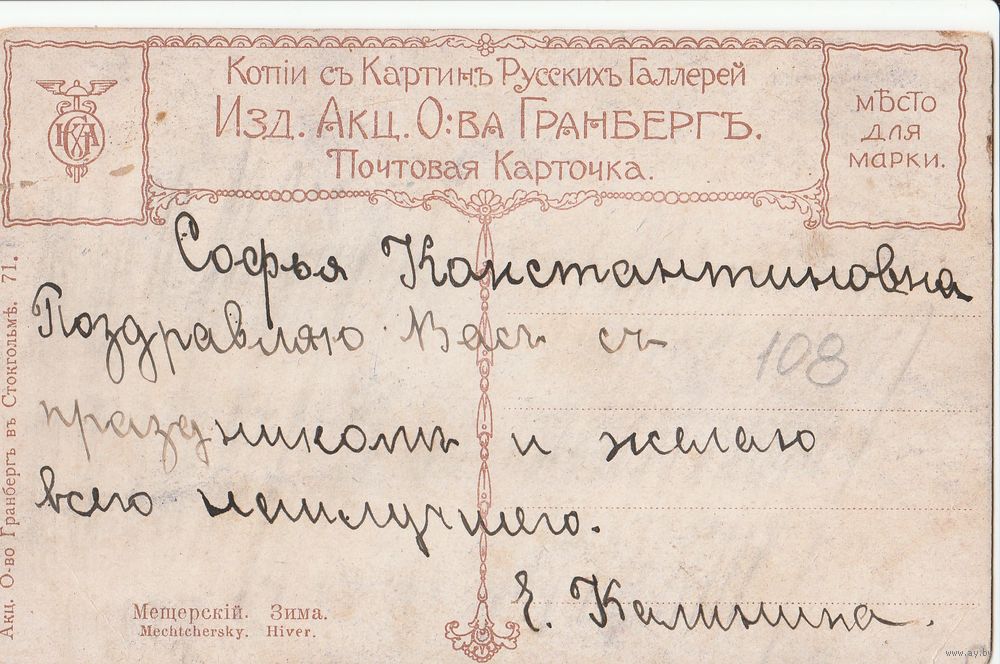 Копіи съ Картинъ Русскихъ Галлерей
Изд. Акц. О:ва Гранбергъ.
Почтовая Карточка.
мѣсто
для
марки.
Софья Константиновна
Поздравляю Васъ съ
108
праздникомъ и желаю
всего наилучшего.
Е. Калинина.
Мещерскій. Зима.
Mechtchersky. Hiver.
Акц. О-во Гранбергъ въ Стокгольмѣ. 71.
www.ay.by